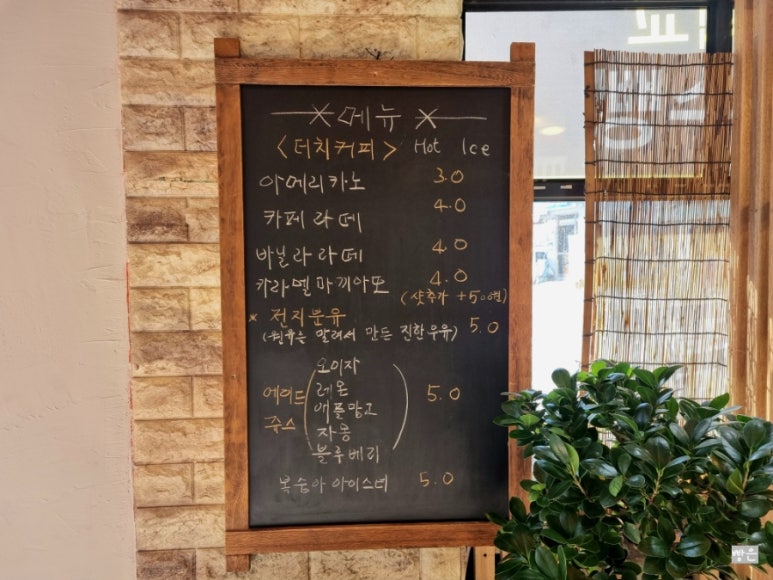 메뉴
<더치커피> Hot Ice
아메리카노 3.0
카페라떼 4.0
바닐라라떼 4.0
카라멜마끼아또 4.0
(샷추가 +500원)
* 전지분유
(원유는 말려서 만든 진한우유) 5.0
오미자
에이드 레몬 5.0
애플망고
쥬스 자몽
블루베리
복숭아 아이스티 5.0
빵은